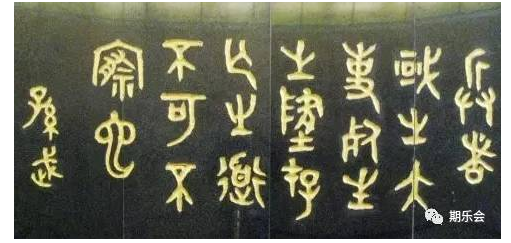 兵者
國之大
事死生
之地存
亡之道
不可不
察也
孫武
期乐会